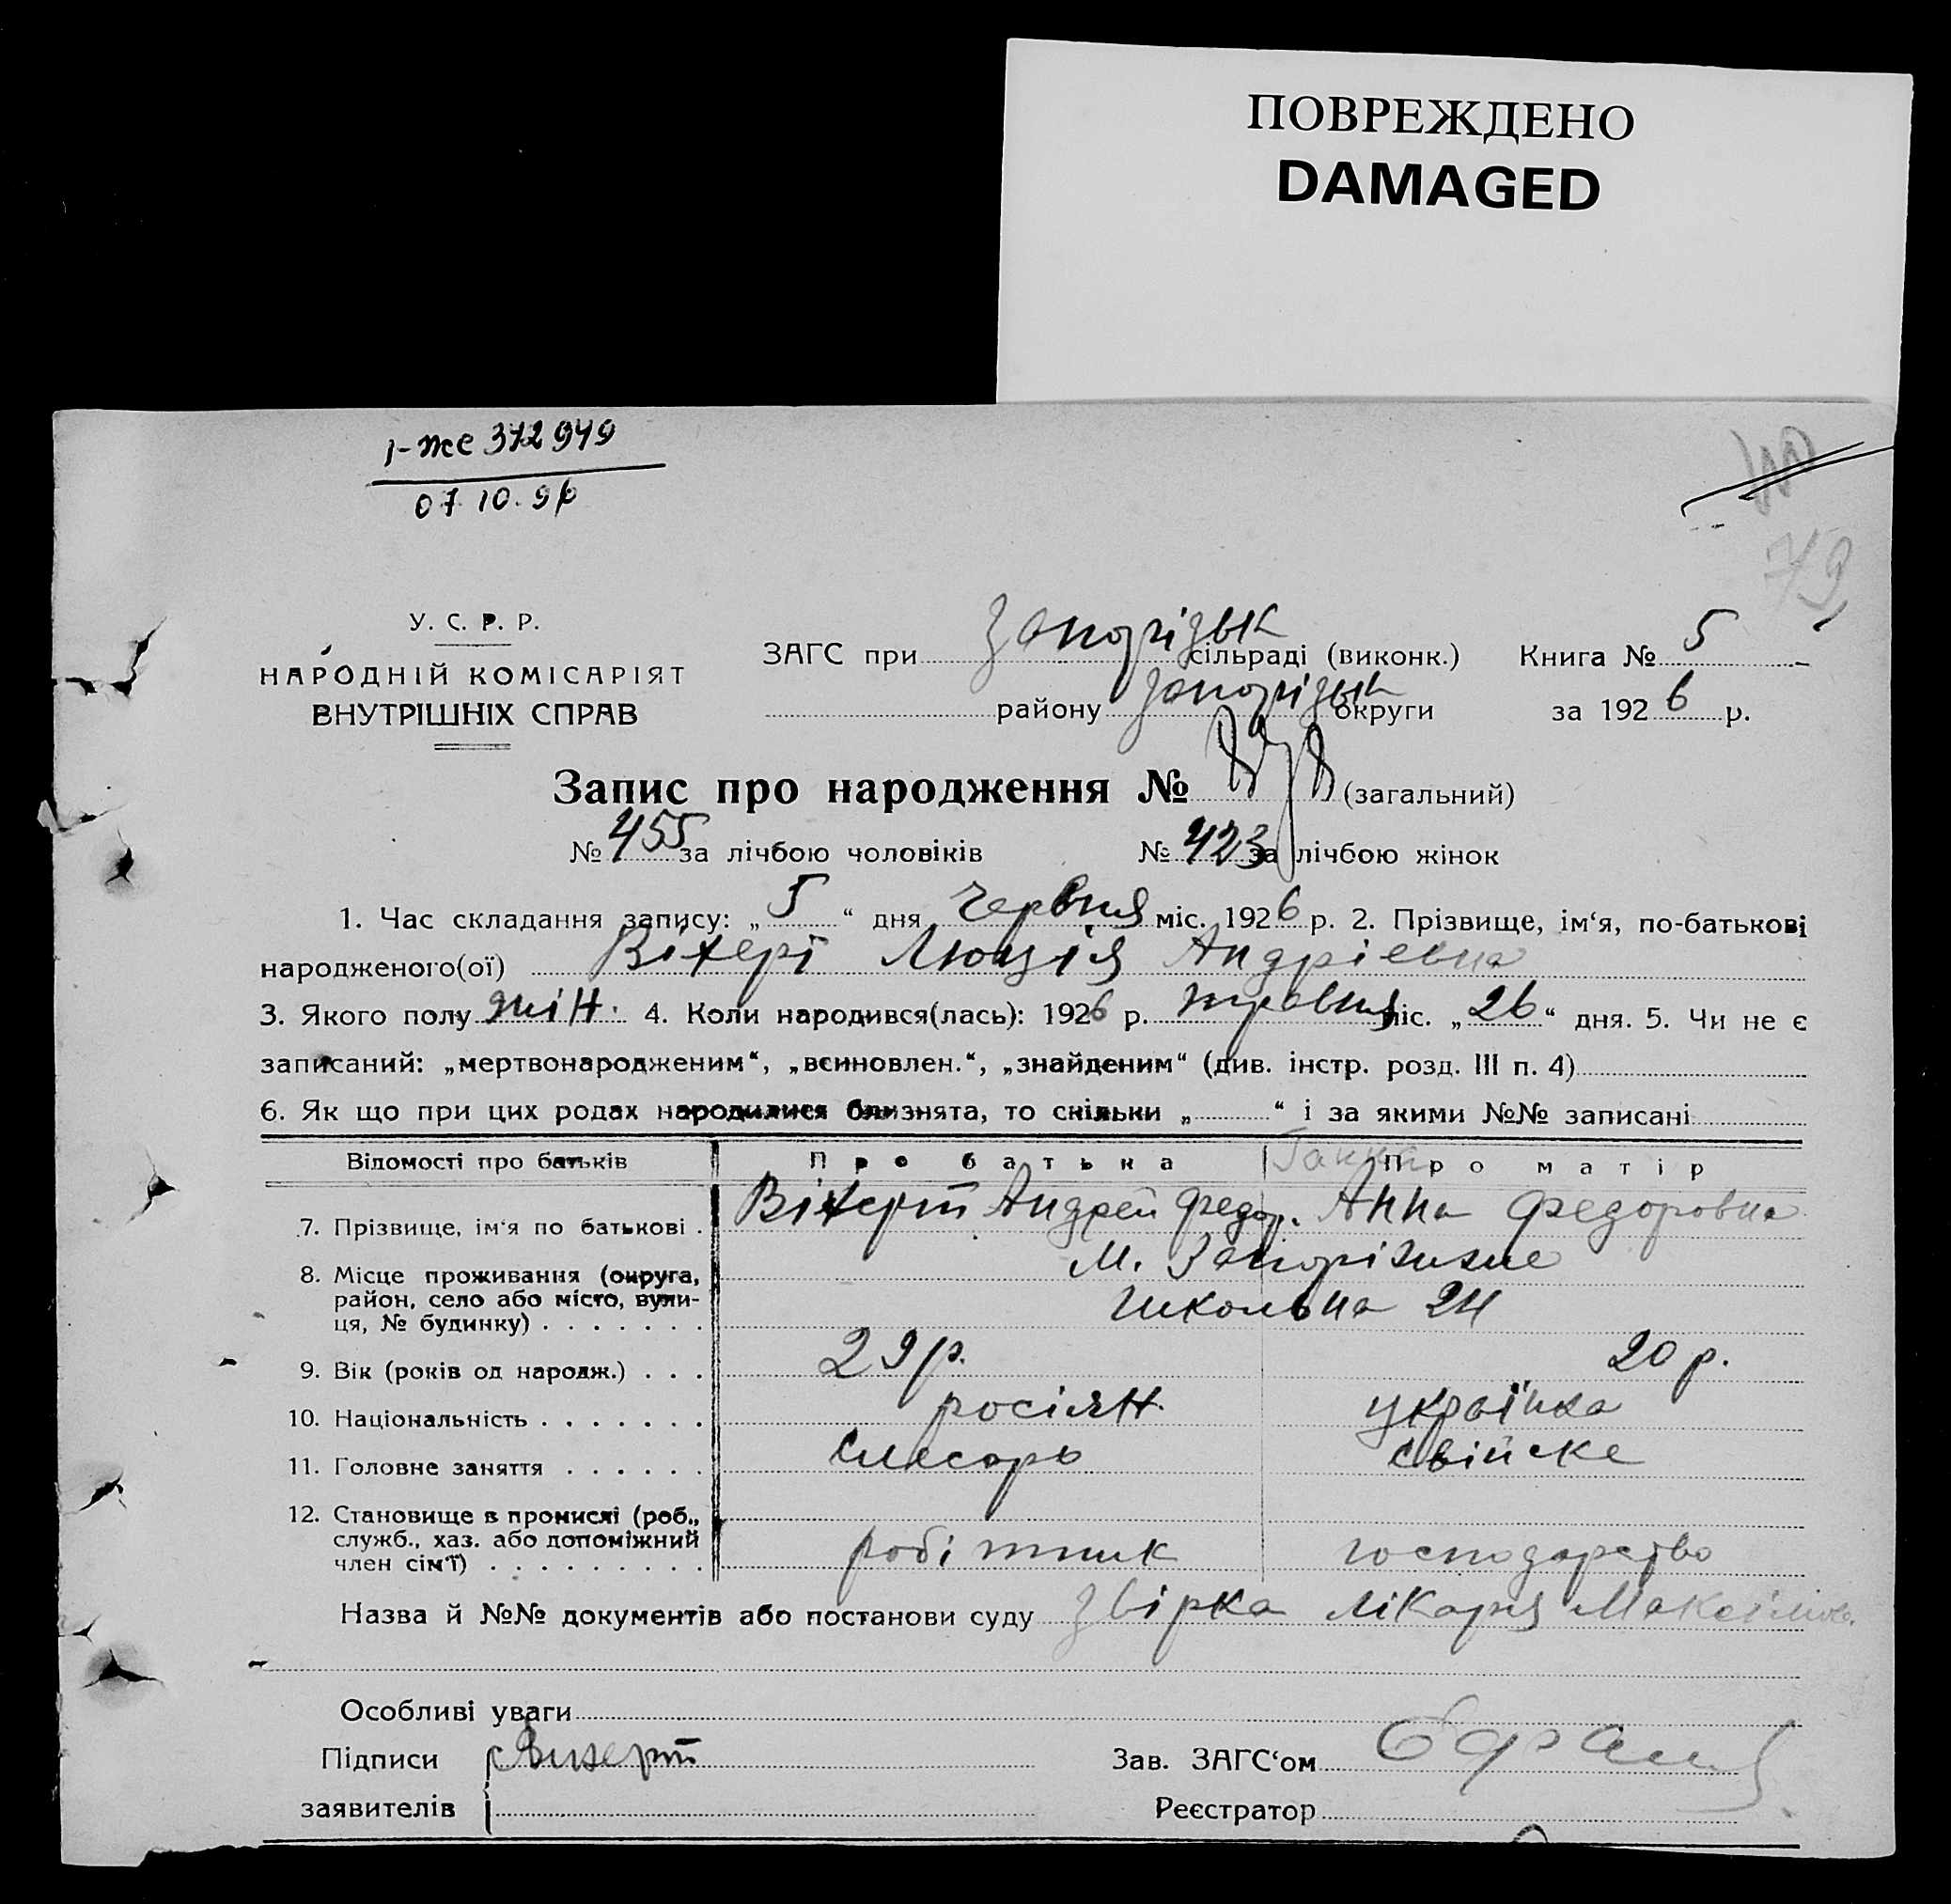 ПОВРЕЖДЕНО
DAMAGED
1-же 372949
07.10.96
79
У. С. Р. Р.
НАРОДНІЙ КОМІСАРІЯТ
ВНУТРІШНІХ СПРАВ
ЗАГС при Запорізьк сільраді (виконк.) Книга № 5
району Запорізьк округи за 1926 р.
Запис про народження № 878 (загальний)
№ 455 за лічбою чоловіків № 423 за лічбою жінок
1. Час складання запису: „5“ дня червня міс. 1926 р. 2. Прізвище, ім‘я, по-батькові
народженого(ої) Віхерт Люція Андріевна
3. Якого полу жін. 4. Коли народився(лась): 1926 р. травня міс. „26“ дня. 5. Чи не є
записаний: „мертвонародженим“, „всиновлен.“, „знайденим“ (див. інстр. розд. III п. 4)
6. Як що при цих родах народилися близнята, то скільки „ “ і за якими №№ записані
Відомості про батьків Про батька Про матір
Ганна
7. Прізвище, ім‘я по батькові . Віхерт Андрей Федор. Анна Федоровна
8. Місце проживання (округа, район, село або місто, вули-ця, № будинку) . . . . . . . м. Запоріжжє
Школьна 24
9. Вік (років од народж.) . . . 29 р. 20 р.
10. Національність . . . . . . . росіян. українка
11. Головне заняття . . . . . . слесарь свійске
12. Становище в промислі (роб., служб., хаз. або допоміжний член сім‘ї) . . . . . . . . . робітник господарство
Назва й №№ документів або постанови суду звірка лікаря
Особливі уваги
Підписи Вихерт Зав. ЗАГС‘ом
заявителів Реєстратор